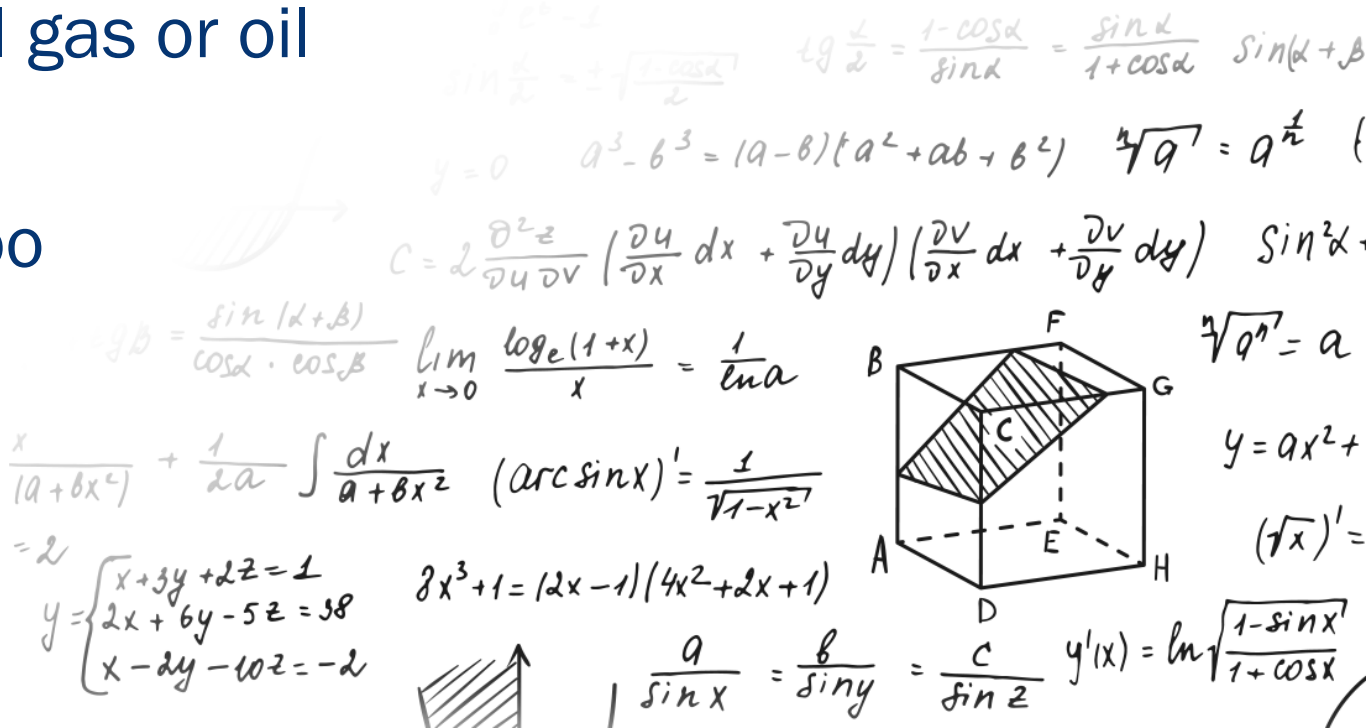 gas or oil
tg 1/2 = (1 - cosα)/(sinα) = (sinα)/(1 + cosα)   Sin(α + β
sin α/2 = ± √((1-cosα)/2)
y = 0   a³ - b³ = (a - b)(a² + ab + b²)   ⁿ√a = a^(1/n)   (
C = 2 ∂²z/(∂u ∂v) (∂u/∂x dx + ∂u/∂y dy)(∂v/∂x dx + ∂v/∂y dy)   Sin²α +
tgβ = sin(α+β)/(cosα · cosβ)   lim x→0 logₑ(1+x)/x = 1/lna   ⁿ√aⁿ = a
B F G C A E H D
x/(a + bx²) + 1/2a ∫ dx/(a + bx²)   (arc sinx)' = 1/√(1-x²)   y = ax² +
= 2   (√x)' =
y = { x + 3y + 2z = 1
2x + 6y - 5z = 38
x - 2y - 10z = -2
8x³ + 1 = (2x - 1)(4x² + 2x + 1)
a/sin x = b/sin y = c/sin z   y'(x) = ln √((1-sinx)/(1+cosx))